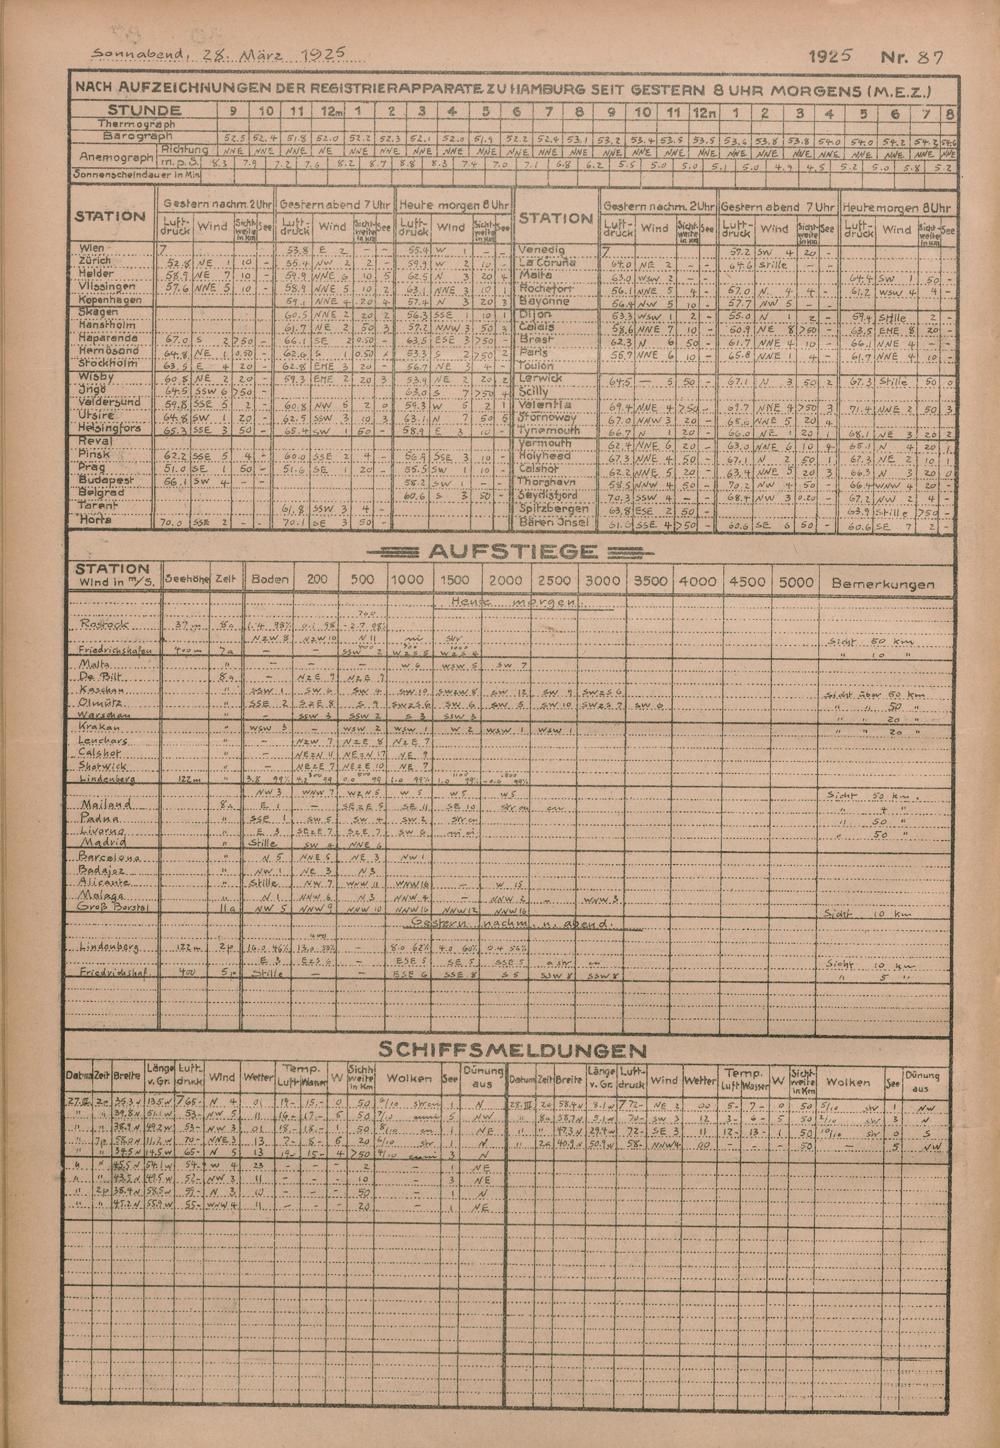 Sonnabend, 28. März 1925 1925 Nr. 87
NACH AUFZEICHNUNGEN DER REGISTRIERAPPARATE ZU HAMBURG SEIT GESTERN 8 UHR MORGENS (M.E.Z.)
STUNDE 9 10 11 12m 1 2 3 4 5 6 7 8 9 10 11 12n 1 2 3 4 5 6 7 8
Thermograph
Barograph 52.5 52.4 51.8 52.0 52.2 52.3 52.1 52.0 51.9 52.2 52.4 53.1 53.2 53.4 53.5 53.5 53.6 53.8 53.8 54.0 54.0 54.2 54.2 54.6
Anemograph Richtung NNE NNE NNE NE NNE NNE NNE NNE NNE NNE NNE NNE NNE NNE NNE NNE NNE NNE NNE NNE NNE NNE NNE NNE
m.p.S. 8.3 7.9 7.2 7.6 8.2 8.7 8.8 8.3 7.4 7.0 7.1 6.8 6.2 5.5 5.0 5.0 5.1 5.0 4.9 4.5 5.2 5.0 5.8 5.2
Sonnenscheindauer in Min
STATION Gestern nachm. 2 Uhr Gestern abend 7 Uhr Heute morgen 8 Uhr STATION Gestern nachm. 2 Uhr Gestern abend 7 Uhr Heute morgen 8 Uhr
Luftdruck Wind Sichtweite in Km See Luftdruck Wind Sichtweite in Km See Luftdruck Wind Sichtweite in Km See Luftdruck Wind Sichtweite in Km See Luftdruck Wind Sichtweite in Km See Luftdruck Wind Sichtweite in Km See
Wien 7 53.8 E 2 - - 55.4 W 1 Venedig 7 57.2 SW 4 20 -
Zürich 52.8 NE 1 10 - 55.4 NW 2 - - 59.9 W 2 10 - La Coruña 64.0 NE 2 - - 64.6 Stille
Helder 58.9 NE 7 10 - 59.9 NNE 6 10 5 62.5 N 3 20 4 Malta 63.0 WSW 2 - - 64.4 SW 1 50 -
Vlissingen 57.6 NNE 5 10 - 58.9 NNE 5 10 2 63.1 NNE 3 10 1 Rochefort 56.1 NNE 5 4 - 67.0 N 4 4 - 61.2 WSW 4 4 -
Kopenhagen 59.1 NNE 4 20 4 57.4 N 3 20 3 Bayonne 56.4 NW 5 10 - 57.7 NW 5 -
Skagen 60.5 NNE 2 20 2 56.3 SSE 1 10 1 Dijon 53.3 WSW 1 2 - 55.0 N 1 2 - 59.4 Stille 2 -
Hanstholm 61.7 NE 2 50 3 57.2 NNW 3 50 3 Calais 58.6 NNE 7 10 - 50.9 NE 8 >50 - 63.5 ENE 8 20 -
Haparanda 67.0 S 2 >50 - 66.1 SE 2 0.50 - 63.5 ESE 3 >50 - Brest 62.3 N 6 50 - 61.7 NNE 4 10 - 66.1 NNE 4 -
Hernösand 64.8 NE 1 0.50 - 62.6 S 1 0.50 53.3 S 2 >50 2 Paris 55.7 NNE 6 10 - 65.8 NNE 1 4 - 61.7 NNE 4 10 -
Stockholm 63.5 E 4 20 - 62.8 ENE 3 20 - 56.7 NE 3 4 - Toulon
Wisby 60.8 NE 2 20 - 59.3 ENE 2 20 3 53.9 NE 2 20 2 Lerwick 64.5 - 5 50 - 67.1 N 3 50 2 67.3 Stille 50 0
Ingö 64.5 SSW 6 >50 - 63.0 S 7 >50 4 Scilly
Valdersund 59.8 SSE 5 2 - 60.8 NW 5 2 0 59.3 W 5 2 1 Valentia 69.4 NNE 4 >50 - 69.7 NNE 4 >50 3 71.4 NNE 2 50 3
Utsire 64.8 SW 1 20 - 62.5 SSW 3 10 3 63.1 N 7 50 5 Stornoway 67.0 NNW 3 20 - 65.6 NNE 5 20 4
Helsingfors 65.3 SSE 3 50 - 65.4 SW 1 50 - 58.9 E 3 10 - Tynemouth 66.7 N 1 20 - 66.0 NE 1 20 - 68.1 NE 3 20 2
Reval Yarmouth 62.4 NNE 6 20 - 63.0 NNE 6 10 4 65.1 N 4 20 1
Pinsk 62.2 SSE 5 4 - 60.0 SSE 2 4 - 56.9 SSE 3 10 - Holyhead 67.3 NNE 4 50 - 67.1 N 2 50 1 67.3 NE 2 10 1
Prag 51.0 SE 1 50 - 51.6 SE 1 20 - 55.5 SW 1 10 - Calshot 62.2 NNE 5 20 - 63.4 NNE 5 20 3 66.3 N 3 20 0
Budapest 56.1 SW 4 - 58.2 SW 1 - Thorshavn 58.5 NNW 4 50 - 70.2 NW 4 50 - 66.4 WNW 4 20
Belgrad 60.6 S 3 50 - Seydisfjord 70.3 SSW 4 - 68.4 NW 3 0.20 - 67.2 NW 2 4 -
Tarent 61.8 SSW 3 4 - Spitzbergen 63.8 ESE 2 50 - 63.9 Stille >50 -
Horta 70.0 SSE 2 - - 70.1 SE 3 50 - Bären Insel 61.6 SSE 4 >50 - 60.6 SE 6 50 - 60.6 SE 7 2 -
AUFSTIEGE
STATION Wind in m/S. Seehöhe Zeit Boden 200 500 1000 1500 2000 2500 3000 3500 4000 4500 5000 Bemerkungen
Heute morgen.
Rostock 37m 8a 1.4 98% 0.1 98 -2.7 98%
NzW 8 NzW 10 N 11 Sicht 50 km
Friedrichshafen 400m 7a - - SSW 2 WzS 5 WzS 4 " 10 "
Malta " - - - W 6 WSW 5 SW 7
De Bilt 8a - NzE 7 NzE 7
Kaschau " SSW 1 SW 6 SW 4 SW 10 SWzW 8 SW 12 SW 9 SWzS 6 Sicht über 50 km
Olmütz " SSE 2 SzE 8 S 9 SWzS 6 SW 6 SW 5 SW 10 SWzS 7 SW 6 " " 50 "
Warschau " - SSW 3 SSW 2 S 3 SSW 3 " " 20 "
Krakau " WSW 3 - WSW 2 WSW 1 W 2 WSW 1 WSW 1 " " 20 "
Leuchars " NzW 7 NzE 8 NzE 7
Calshot " NEzN 11 NEzN 17 NE 9
Shotwick " NEzE 7 NEzE 10 NE 7
Lindenberg 122m " 3.8 99%
NW 3 WNW 7 WzN 5 W 5 W 5 W 5 Sicht 50 km.
Mailand 8a E 1 - SEzE 5 SE 11 SE 10 Str cu cu " 4 "
Padua " SSE 1 SW 5 SW 4 SW 2 Str cu " 50 "
Livorno " E 3 SEzE 7 SzE 7 SW 6 " 50 "
Madrid " Stille SW 4 NNE 6
Barcelona " N 5 NNE 5 NE 3 NW 1
Badajoz " NW 1 NE 3 N 3
Alicante " Stille NW 7 WNW 11 WNW 16 - W 15
Malaga " N 1 NNW 6 N 3 NNW 4 - NNW 2 - WNW 3
Groß Borstel 11a NW 5 NNW 9 NNW 10 NNW 16 NNW 12 NNW 16 Sicht 10 km
Gestern nachm. u. abend.
Lindenberg 122m 2p 16.0 46% 13.0 50% 8.0 62% 4.0 60% 0.4 56%
E 3 EzS 6 - ESE 5 SE 5 SSE 5 Sicht 10 km
Friedrichshaf. 400 5p Stille - - ESE 6 SSE 8 S 5 SSW 8 SSW 8 " 5 "
SCHIFFSMELDUNGEN
Datum Zeit Breite Länge v. Gr. Luftdruck Wind Wetter Temp. Luft Wasser W Sichtweite in Km Wolken See Dünung aus Datum Zeit Breite Länge v. Gr. Luftdruck Wind Wetter Temp. Luft Wasser W Sichtweite in Km Wolken See Dünung aus
27.III 2p 35.3N 13.5W 765- N 4 01 19- 15- 0 50 9/10 strcu 1 N 28.III 2a 58.4N 8.1W 772- NE 2 00 5- 7- 0 50 5/10 str 1 NW
" " 39.8N 51.1W 53- NW 5 11 16- 17- 5 50 7/10 cumi 5 NW " 8a 58.7N 5.1W 70- SW 12 3- 6- 5 50 3 N
" " 38.9N 49.2W 53- NW 3 01 18- 18- 1 50 8/10 cu 1 NE " " 47.3N 29.4W 72- SE 3 11 12- 13- 1 50 10/10 str 0 S
" 7p 58.0N 11.2W 70- NNE 3 13 7- 8- 6 20 9/10 str 1 N " 2a 40.9N 50.9W 58- NNW 4 00 - - - 50 - 5 NW
" " 34.5N 14.5W 65- N 5 13 19- 15- 4 >50 4/10 cumi 3 N
" " 45.5N 54.1W 54- W 4 23 - - - 2 - 1 NE
" " 43.5N 49.5W 52- NW 3 11 - - - 10 - 3 NE
" 2p 38.4N 58.5W 59- N 3 10 - - - 50 - 1 N
" " 45.2N 55.9W 55- WNW 4 11 - - - 20 - 1 NE